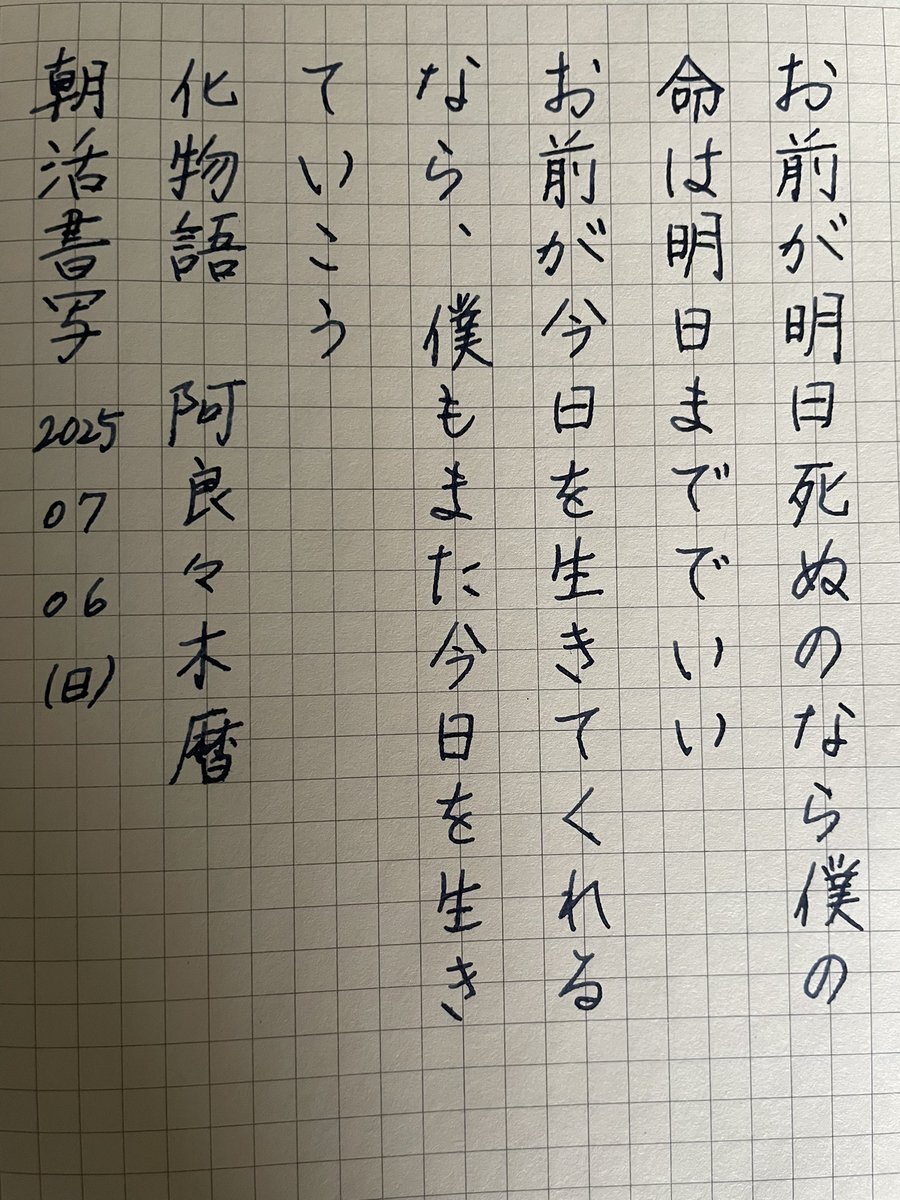 お前が明日死ぬのなら僕の
命は明日まででいい
お前が今日を生きてくれる
なら、僕もまた今日を生き
ていこう
化物語 阿良々木暦
朝活書写 2025 07 06 (日)